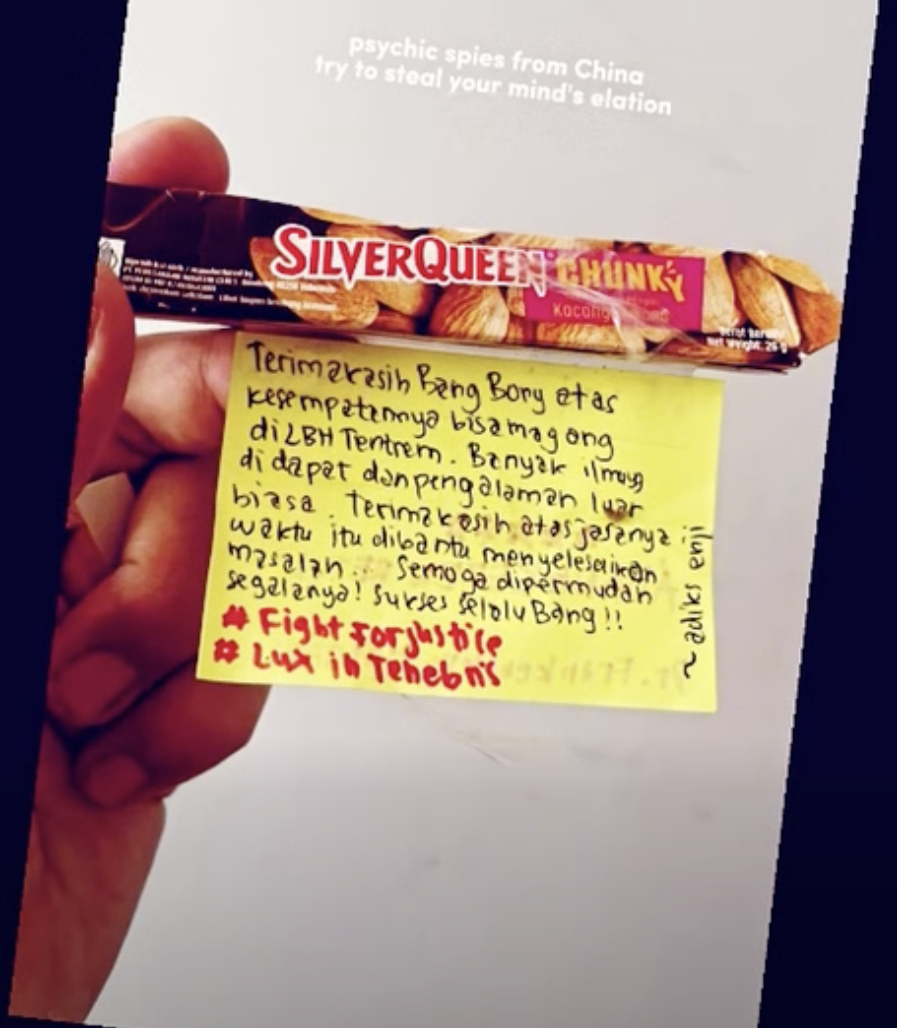 psychic spies from China
try to steal your mind's elation
SILVERQUEEN CHUNKY
Kacang
Net Weight: 26 g
Terimakasih Bang Bony atas
kesempatannya bisa magang
di LBH Tentrem. Banyak ilmu yg
di dapat dan pengalaman luar
biasa. Terimakasih atas jasanya
waktu itu dibantu menyelesaikan
masalah. Semoga dipermudah
segalanya! Sukses Selalu Bang!!
# Fight For justice
# Lux in Tenebris
~ adiks enji